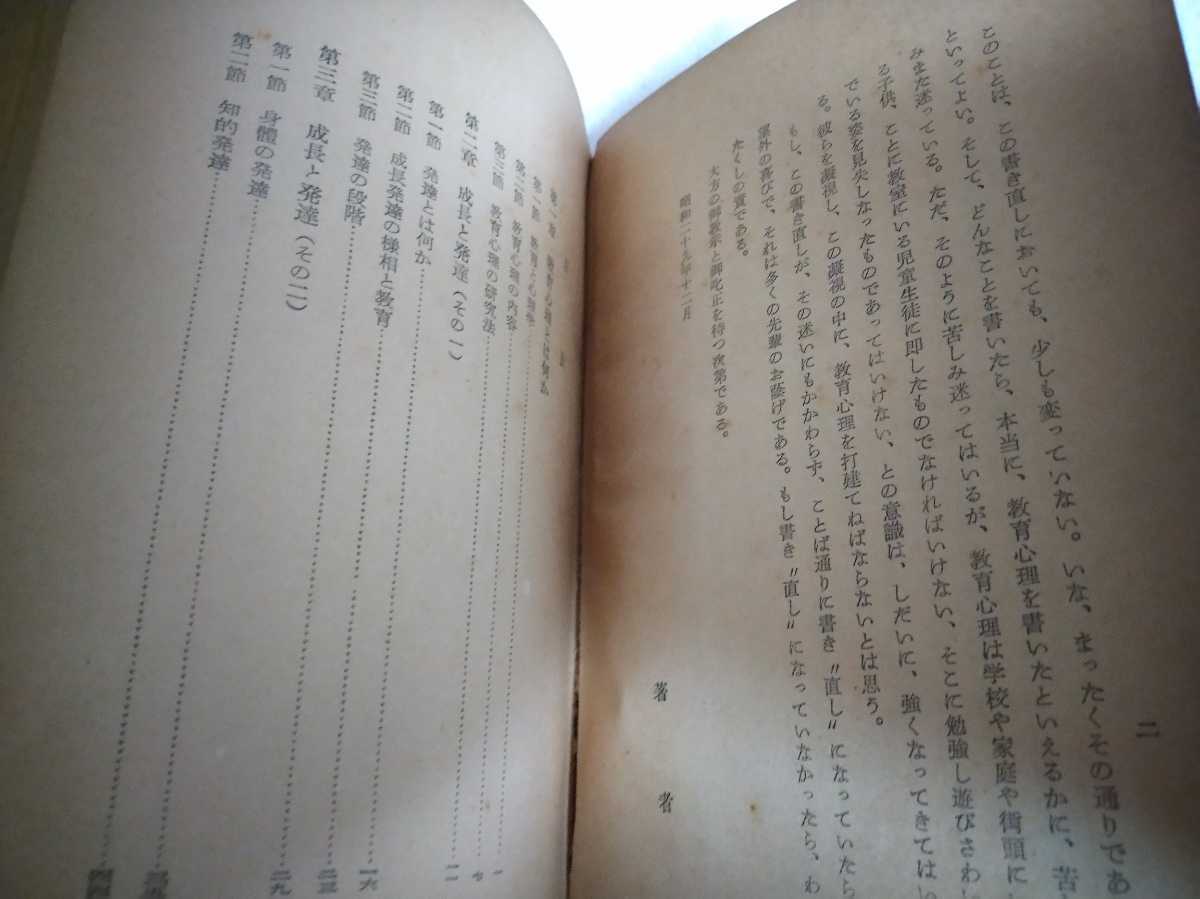 二
このことは、この書き直しにおいても、少しも変っていない。いな、まったくその通りであ
といってよい。そして、どんなことを書いたら、本当に、教育心理を書いたといえるかに、苦
みまた迷っている。ただ、そのように苦しみ迷ってはいるが、教育心理は学校や家庭や街頭に
る子供、ことに教室にいる児童生徒に即したものでなければいけない、そこに勉強し遊びさわい
でいる姿を見失しなったものであってはいけない、との意識は、しだいに、強くなってきてはい
る。彼らを凝視し、この凝視の中に、教育心理を打建てねばならないとは思う。
もし、この書き直しが、その迷いにもかかわらず、ことば通りに書き〝直し〟になっていたら
望外の喜びで、それは多くの先輩のお蔭げである。もし書き〝直し〟になっていなかったら、わ
たくしの責である。
大方の御教示と御叱正を待つ次第である。
昭和二十九年十二月
著者
目次
第一章 教育心理とは何か 一
第一節 教育と心理学 一
第二節 教育心理の内容 七
第三節 教育心理の研究法 一一
第二章 成長と発達(その一)
第一節 発達とは何か 一六
第二節 成長発達の様相と教育 二三
第三節 発達の段階 二九
第三章 成長と発達(その二)
第一節 身體の発達 三九
第二節 知的発達 四四